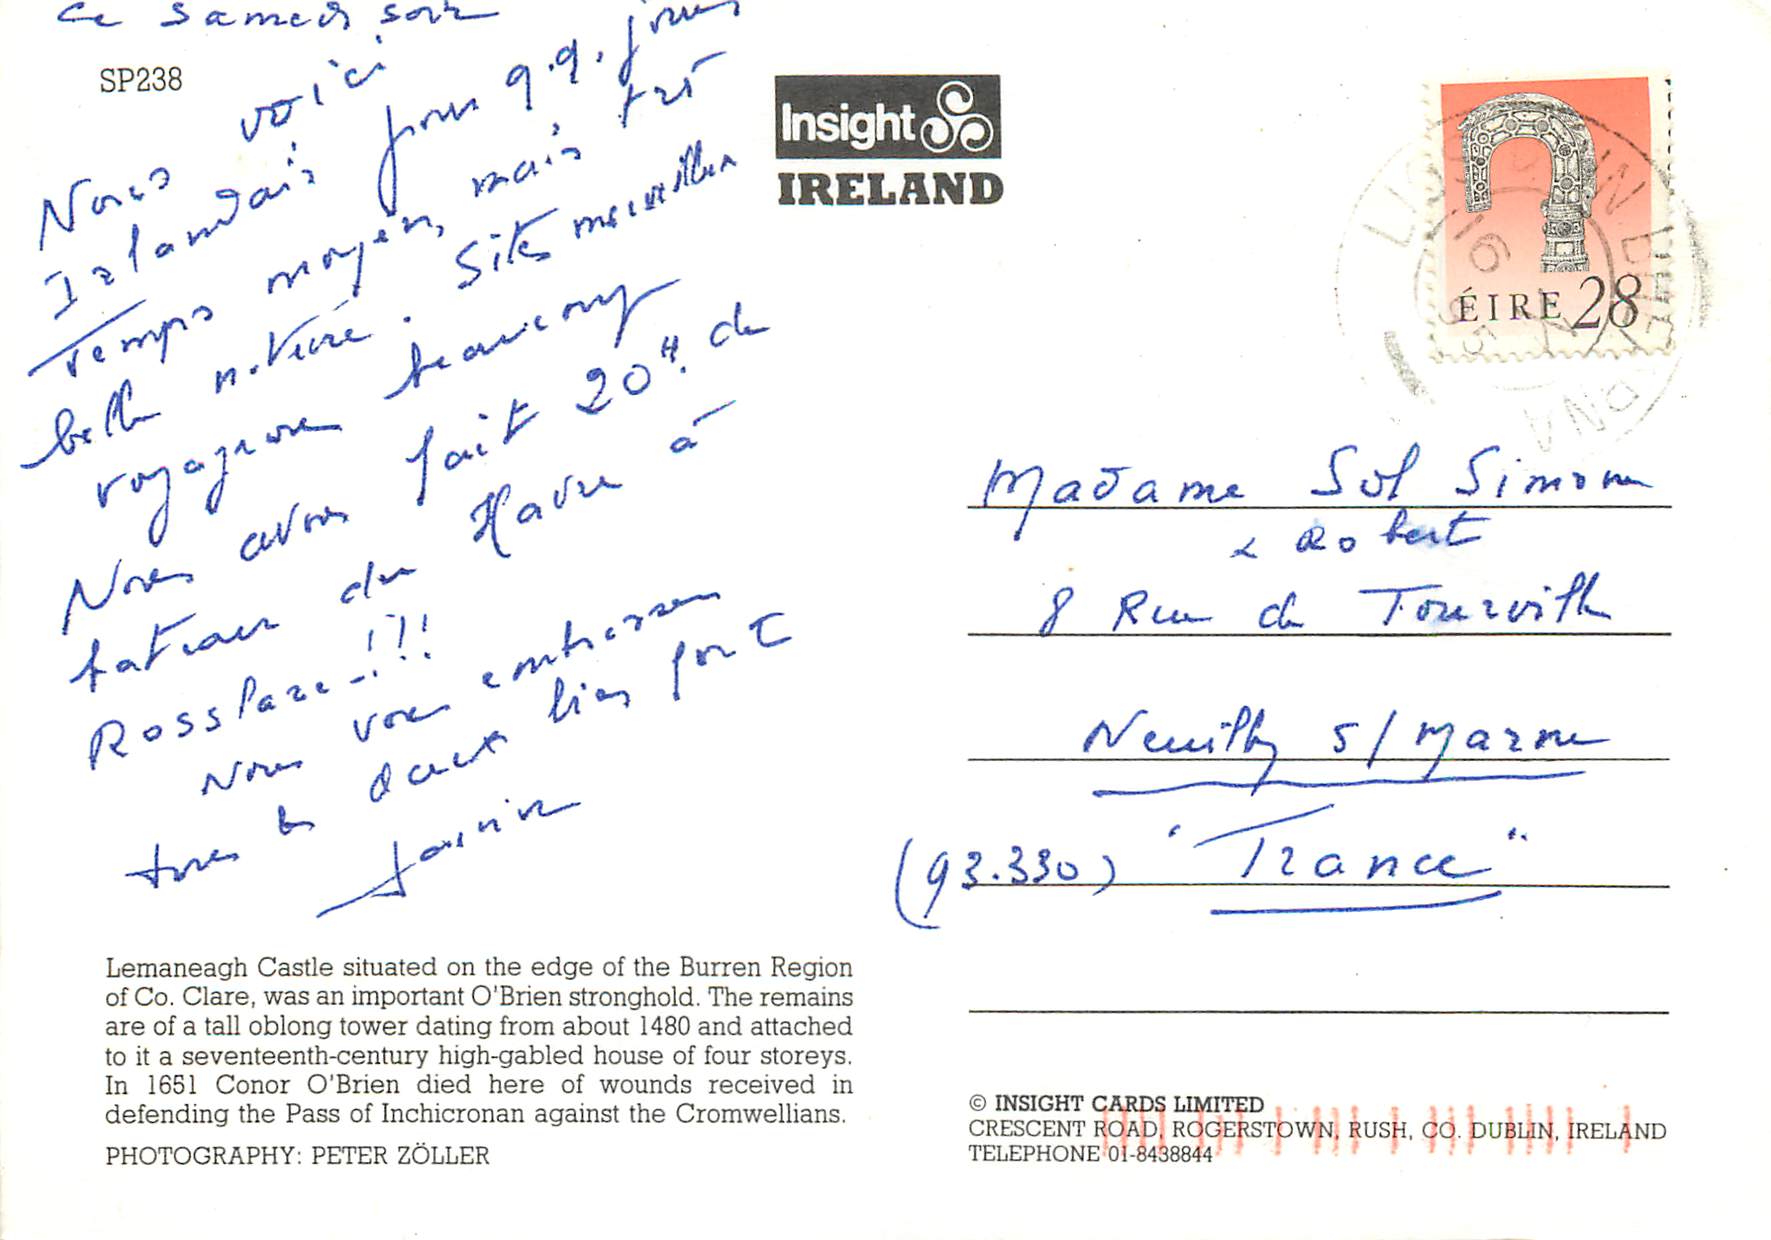 ce samedi soir
SP238
Nous voici
Irlandais pour q.q. jours
Temps moyen, mais très
belle nature. Sites merveilleux
voyageons beaucoup
Nous avons fait 20H. de
bateau du Havre à
Rosslare-!?!
Nous vous embrassons
tous les deux bien fort
Janine
Insight
IRELAND
ÉIRE 28
Madame Sol Simone
& Robert
8 Rue de Tourville
Neuilly s/Marne
(93.330) "France"
Lemaneagh Castle situated on the edge of the Burren Region
of Co. Clare, was an important O'Brien stronghold. The remains
are of a tall oblong tower dating from about 1480 and attached
to it a seventeenth-century high-gabled house of four storeys.
In 1651 Conor O'Brien died here of wounds received in
defending the Pass of Inchicronan against the Cromwellians.
PHOTOGRAPHY: PETER ZÖLLER
© INSIGHT CARDS LIMITED
CRESCENT ROAD, ROGERSTOWN, RUSH, CO. DUBLIN, IRELAND
TELEPHONE 01-8438844